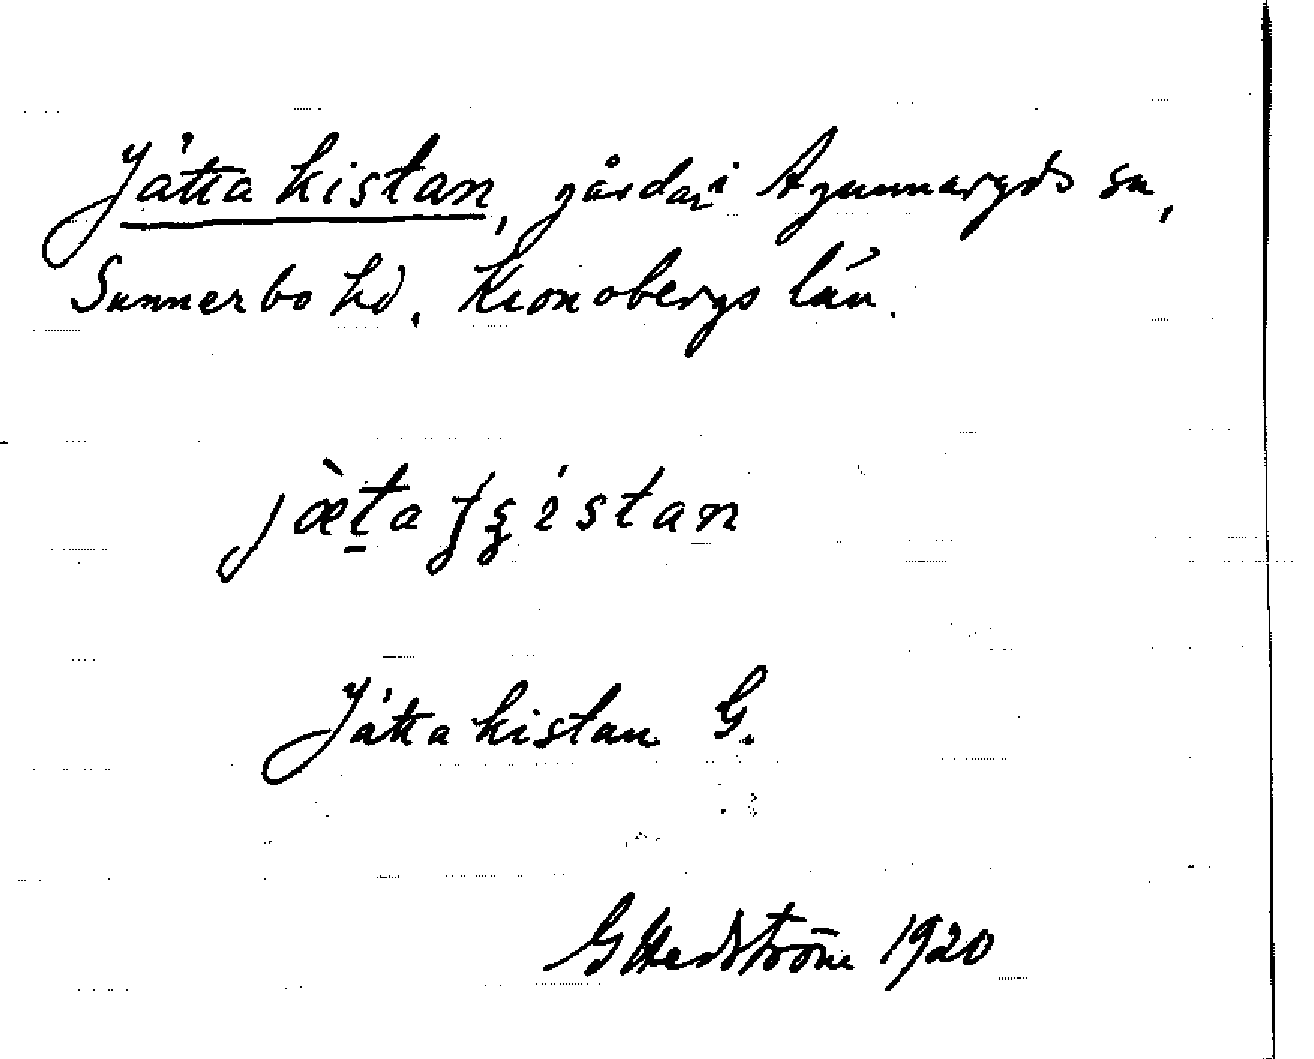 Jättakistan, gårdar i Agunnaryds sn,
Sunnerbo hd. Kronobergs län.
Jättakistan G.
G Hedström 1920